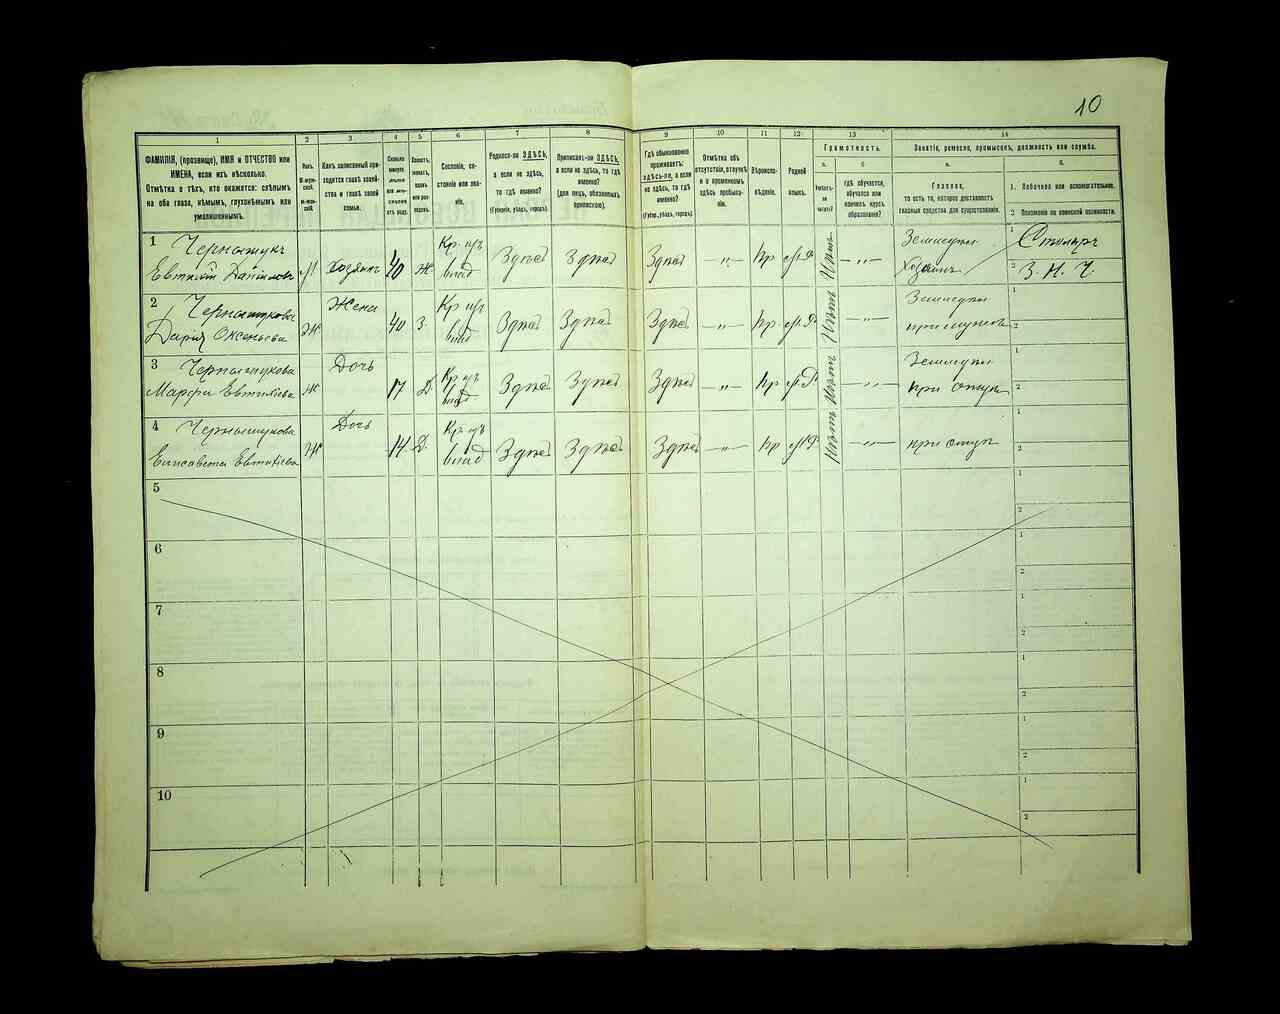 10
1 2 3 4 5 6 7 8 9 10 11 12 13 14
ФАМИЛІЯ, (прозвище), ИМЯ и ОТЧЕСТВО или
ИМЕНА, если ихъ нѣсколько.
Отмѣтка о тѣхъ, кто окажется: слѣпымъ
на оба глаза, нѣмымъ, глухонѣмымъ или
умалишеннымъ.
Полъ.
М-мужской.
Ж-женскій.
Какъ записанный приходится
главѣ хозяйства и главѣ своей
семьи.
Сословіе, состояніе
или званіе.
Родился-ли ЗДѢСЬ,
а если не здѣсь,
то гдѣ именно?
(Губернія, уѣздъ, городъ).
Приписанъ-ли ЗДѢСЬ,
а если не здѣсь, то гдѣ
именно?
(для лицъ, обязанныхъ
припискою).
Гдѣ обыкновенно
проживаетъ:
здѣсь-ли, а если
не здѣсь, то гдѣ
именно?
(Губерн., уѣздъ, городъ)
Отмѣтка объ
отсутствіи, отлучкѣ
и о временномъ
здѣсь пребываніи.
Вѣроисповѣданіе.
Родной
языкъ.
Грамотность.
а.
Умѣетъ-ли
читать?
б.
гдѣ обучается,
обучался или
кончилъ курсъ
образованія?
Занятіе, ремесло, промыселъ, должность или служба.
а.
Главное,
то есть то, которое доставляетъ
главныя средства для существованія.
б.
1. Побочное или вспомогательное.
2 Положеніе по воинской повинности.
1 Чернышукъ
Евтихій Даниловъ М Хозяинъ 40 Ж Кр. влад Здѣсь Здѣсь Здѣсь —"— Пр М.Р Нѣтъ —"— Хозяинъ
1 Столяръ
2 З. Н. Ч.
2 Чернышукова
Дарія Оксеньева Ж Жена 40 З. влад Здѣсь Здѣсь Здѣсь —"— Пр. М.Р Нѣтъ —"—
1
2
3 Чернышукова
Марфа Евтихіева Ж Дочь 17 Д влад Здѣсь Здѣсь Здѣсь —"— Пр М.Р Нѣтъ —"— при отцѣ
1
2
4 Чернышукова
Елисавета Евтихіева Ж Дочь 14 Д влад Здѣсь Здѣсь Здѣсь —"— Пр М.Р Нѣтъ —"— при отцѣ
1
2
5
1
2
6
2
7
1
2
8
1
2
9
1
2
10
1
2